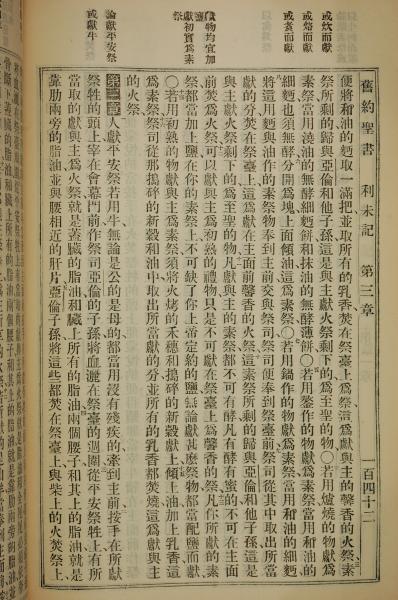 舊約聖書 利未記 第三章 百四十二
或炊而獻
或烙而獻
或煮而獻
物均宜加
獻初實爲素
祭
論獻平安祭
或獻牛
便將和油的麪取一滿把並取所有的乳香焚在祭臺上爲祭這爲獻與主的馨香的火祭素
祭所剩的歸與亞倫和他子孫這是與主獻火祭剩下的爲至聖的物○若用爐燒的物獻爲
素祭當用澆油的無酵細麪餅和抹油的無酵薄餅○若用鏊作的物獻爲素祭當用和油的
細麪也須無酵分開爲塊上面傾油這爲素祭○若用鍋作的物獻爲素祭當用和油的細麪
將這用麪與油作的素祭物奉到主前交與祭司祭司便奉到祭臺前祭司從其中取出所當
獻的分焚在祭臺上這爲獻在主面前馨香的火祭這素祭所剩的歸與亞倫和他子孫這是
與主獻火祭剩下的爲至聖的物凡獻與主的素祭都不可有酵凡有酵有蜜的不可在主面
前焚爲火祭可以獻與主爲初熟的禮物只是不可獻在祭臺上爲馨香的祭凡你所獻的素
祭都當加上鹽在你的素祭上不可缺了你上帝定約的鹽無論獻甚麼祭物都當配鹽而獻
○若用初熟的物獻與主爲素祭須將火烤的禾穗和搗碎的新穀獻上傾上油加上乳香這
爲素祭祭司從那搗碎的新穀和油中取出所當獻的分並所有的乳香都焚燒這爲獻與主
的火祭
第三章 人獻平安祭若用牛無論是公的是母的都當用沒有殘疾的牽到主前按手在所獻
祭牲的頭上宰在會幕門前作祭司亞倫的子孫將血灑在祭臺的週圍從平安祭牲上有所
當取的獻與主爲火祭就是蓋臟的脂油和臟上所有的脂油兩個腰子和其上的脂油就是
靠肋兩旁的脂油並與腰相近的肝片亞倫子孫將這些都焚在祭臺上與柴上的火焚祭上